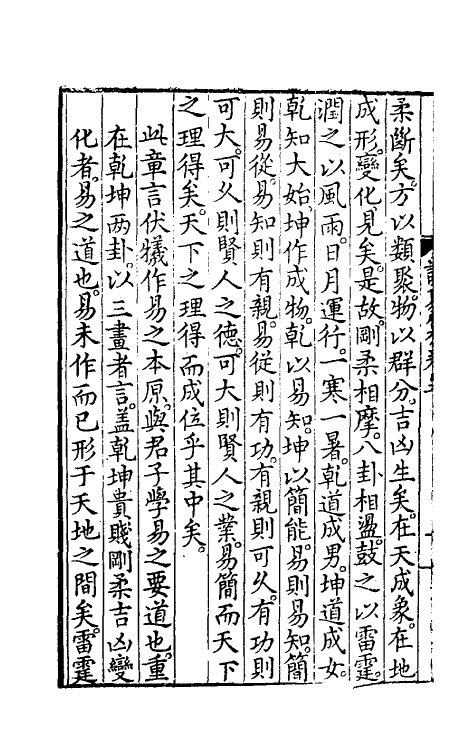 柔斷矣。方以類聚。物以群分。吉凶生矣。在天成象。在地
成形。變化見矣。是故。剛柔相摩。八卦相盪。鼓之以雷霆。
潤之以風雨。日月運行。一寒一暑。乾道成男。坤道成女。
乾知大始。坤作成物。乾以易知。坤以簡能。易則易知。簡
則易從。易知則有親。易從則有功。有親則可久。有功則
可大。可久則賢人之德。可大則賢人之業。易簡而天下
之理得矣。天下之理得而成位乎其中矣。
此章言伏犧作易之本原。與君子學易之要道也。重
在乾坤两卦。以三畫者言。蓋乾坤貴賤剛柔吉凶變
化者。易之道也。易未作而已形于天地之間矣。雷霆